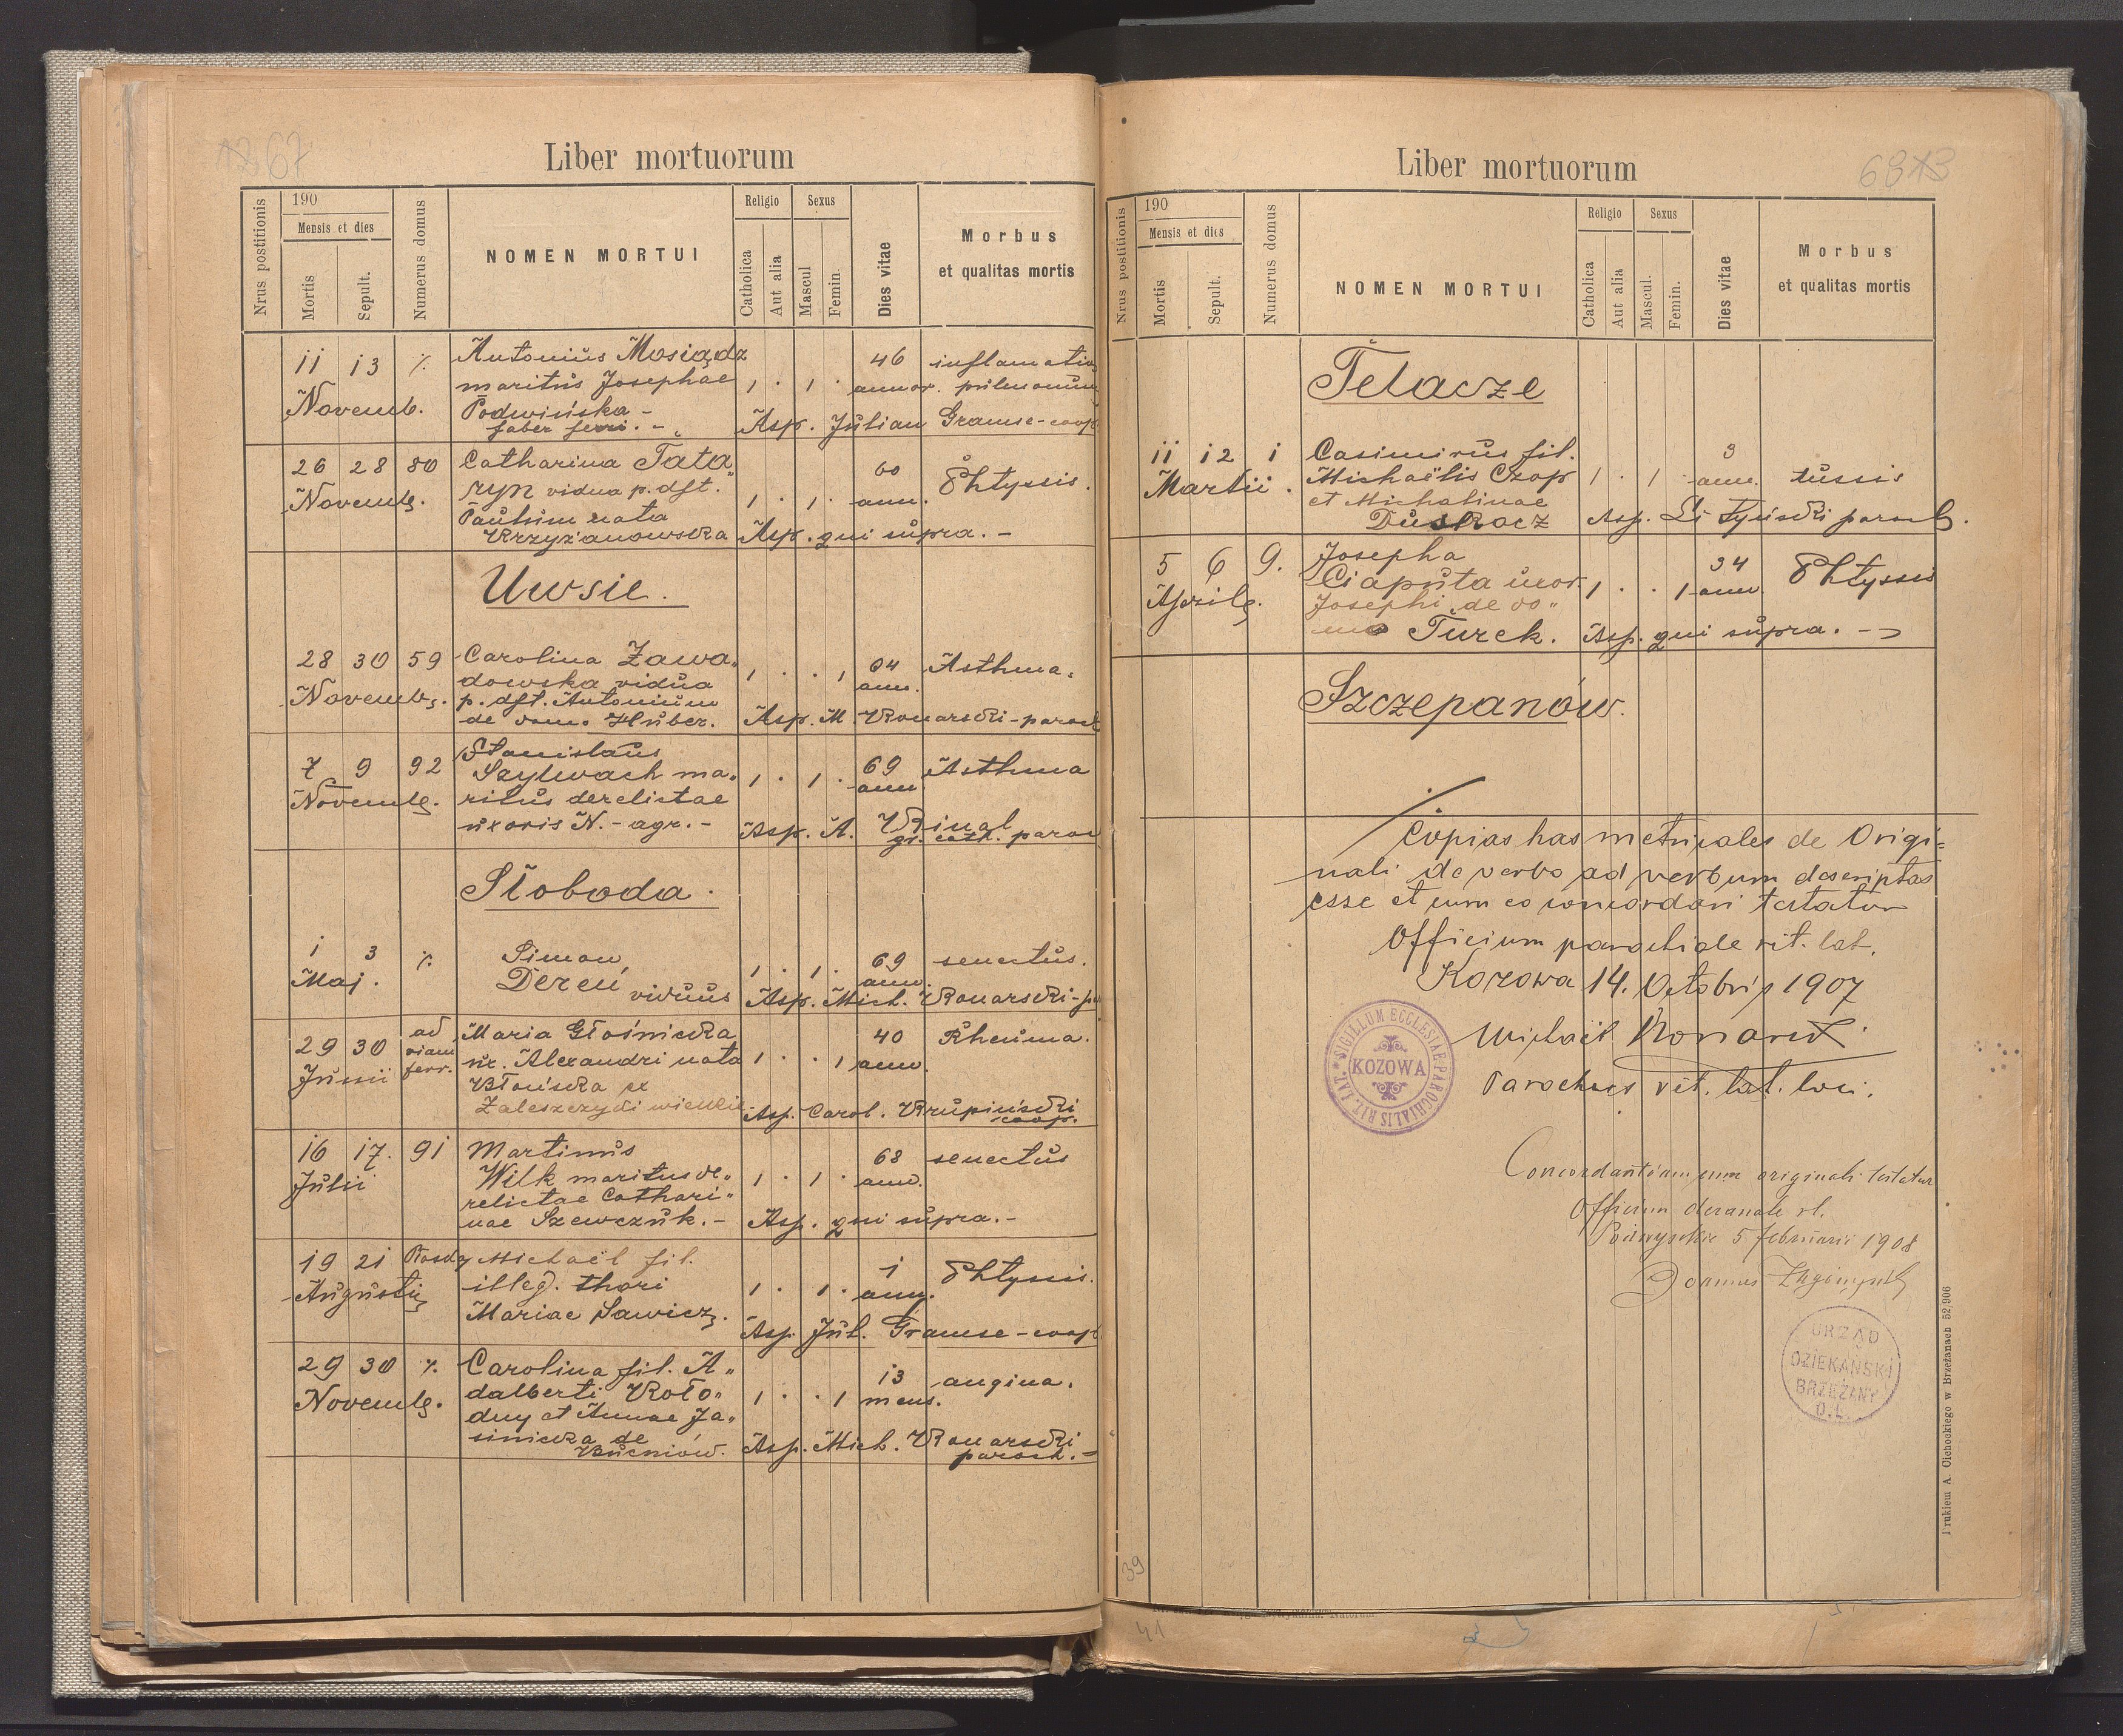 67
Liber mortuorum
Nrus postitionis
190
Mensis et dies
Mortis
Sepult.
Numerus domus
NOMEN MORTUI
Religio
Catholica
Aut alia
Sexus
Mascul
Femin.
Dies vitae
Morbus
et qualitas mortis
11 13 ./.
Novemb.
Antonius Mosiądz
maritus Josephae
Podwińska -
faber ferri. -
1 . 1 .
46
annor.
inflamatio
pulmonum
Asp. Julian Gramse - coop
26 28 80
Novemb.
Catharina Tata„
ryn vidua p. dft.
Paulum nata
Krzyżanowska
1 . 1 .
60
ann.
Phtyssis.
Asp. qui supra. -
Uwsie.
28 30 59
Novemb.
Carolina Zawa„
dowska vidua
p. dft. Antonium
de domo Huber.
1 . . 1
64
ann.
Asthma.
Asp. M. Konarski - paroch
7 9 92
Novemb.
Stanislaus
Szylwach ma„
ritus derelictae
uxoris N. - agr. -
1 . 1 .
69
ann.
Asthma
Asp. A.
gr. cath. paroch
Słoboda.
1 3 ./.
Maj.
Simon
Dereń viduus
1 . 1 .
69
ann.
senectus.
Asp. Mich. Konarski - p
29 30 ad
viam
ferr.
Junii
Maria Głośnicka
ux. Alexandri nata
Błońska ex
Zaleszczyki wielkie
1 . . 1
40
ann.
Rheuma.
Asp. Carol. Krupiński
coop.
16 17. 91
Julii
Martinus
Wilk maritus de„
relictae Cathari„
nae Szewczuk. -
1 . 1 .
68
ann.
senectus
Asp. qui supra. -
19 21
Augusti
Michaël fil.
illeg. thori
Mariae Sawicz.
1 . 1 .
1
ann.
Phtyssis.
Asp. Jul. Gramse - coop
29 30 ./.
Novemb.
Carolina fil. A„
dalberti Koło„
dny et Annae Ja„
sinicka de
Bucniów.
1 . . 1
13
mens.
angina.
Asp. Mich. Konarski
paroch. -
Liber mortuorum
68
Nrus postitionis
190
Mensis et dies
Mortis
Sepult.
Numerus domus
NOMEN MORTUI
Religio
Catholica
Aut alia
Sexus
Mascul.
Femin.
Dies vitae
Morbus
et qualitas mortis
Telacze
11 12 1
Martii.
Casimirus fil.
Michaëlis Czop
et Michalinae
1 . 1 .
3
ann.
tussis
Asp. Li Tyński paroch.
5 6 9.
Aprilis.
Josepha
Ciaputa uxor.
Josephi de do„
mo Turek.
1 . . 1
34
ann.
Phtyssis
Asp. qui supra. -
Szczepanów.
./.
Copias has metricales de Origi=
nali de verbo ad verbum descriptas
esse et cum eo concordari testatur
Officium parochiale rit. lat.
Kozowa 14. Octobris 1907
Michaël Konarski
Parochus rit. lat. loci.
SIGILLUM ECCLESIAE PAROCHIALIS RIT. LAT.
KOZOWA
Concordantiam cum originali testatur
Officium decanale rl.
5 februarii 1908
URZĄD
DZIEKAŃSKI
BRZEŻANY
O.Ł.
Drukiem A. Cichockiego w Brzeżanach 52/906
39
41